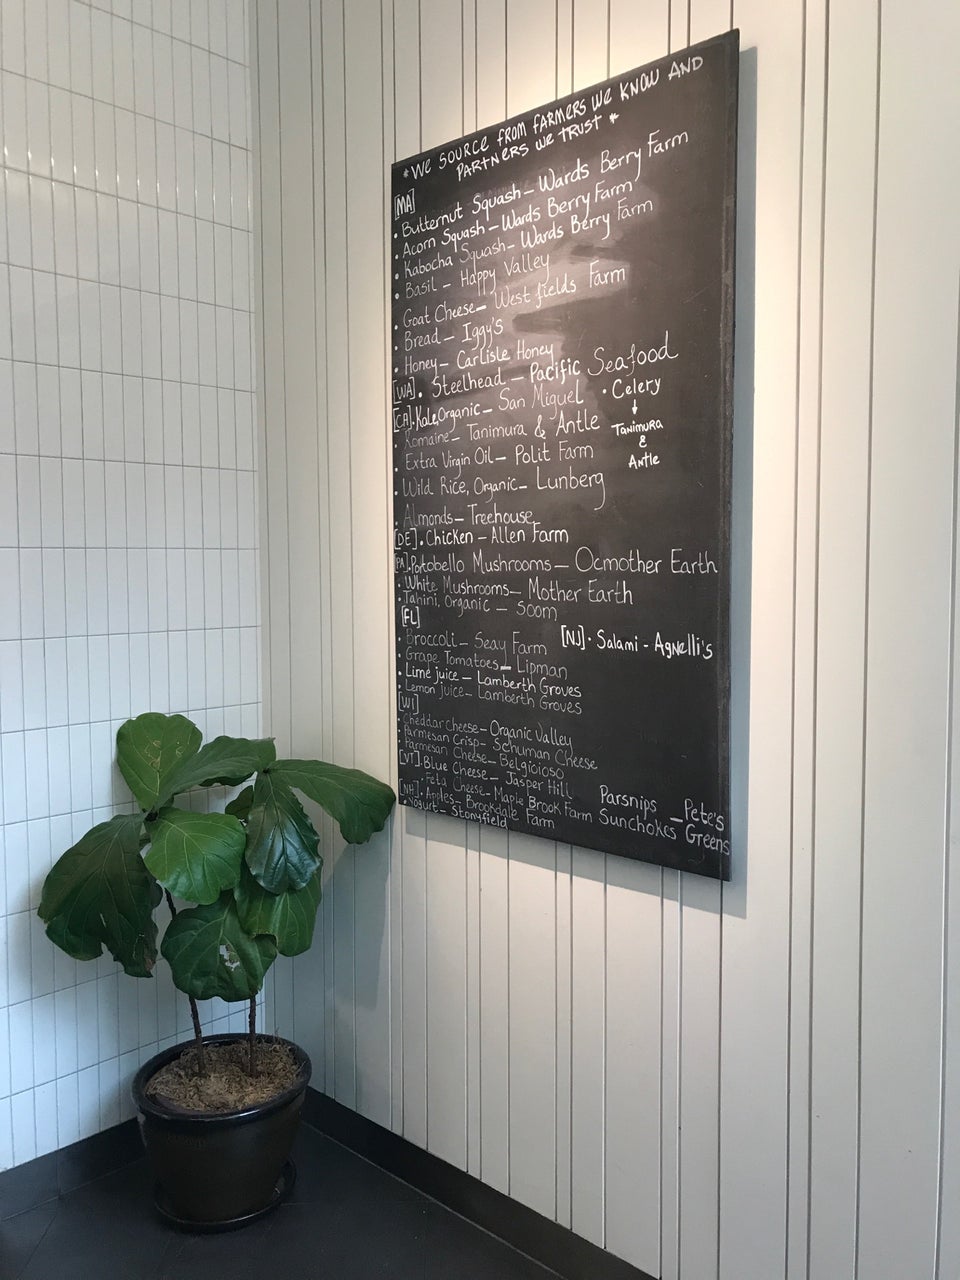 *We SOURCE FROM FARMERS We KNOW AND
PARTNERS We TRUST *
[MA]
• Butternut Squash – Wards Berry Farm
• Acorn Squash – Wards Berry Farm
• Kabocha Squash – Wards Berry Farm
• Basil – Happy Valley
• Goat Cheese – Westfields Farm
• Bread – Iggy's
• Honey – Carlisle Honey
[WA] • Steelhead – Pacific Seafood
[CA] • Kale, Organic – San Miguel
• Celery
↓
Tanimura
&
Antle
• Romaine – Tanimura & Antle
• Extra Virgin Oil – Polit Farm
• Wild Rice, Organic – Lunberg
• Almonds – Treehouse
[DE] • Chicken – Allen Farm
[PA] • Portobello Mushrooms – Ocmother Earth
• White Mushrooms – Mother Earth
• Tahini, Organic – Soom
[FL]
• Broccoli – Seay Farm
[NJ] • Salami - Agnelli's
• Grape Tomatoes – Lipman
• Lime juice – Lamberth Groves
• Lemon juice – Lamberth Groves
[WI]
• Cheddar cheese – Organic Valley
• Parmesan Crisp – Schuman Cheese
• Parmesan Cheese – Belgioioso
[VT] • Blue Cheese – Jasper Hill
• Feta Cheese – Maple Brook Farm
Parsnips – Pete's
Sunchokes Greens
[NH] • Apples – Brookdale Farm
• Yogurt – Stonyfield